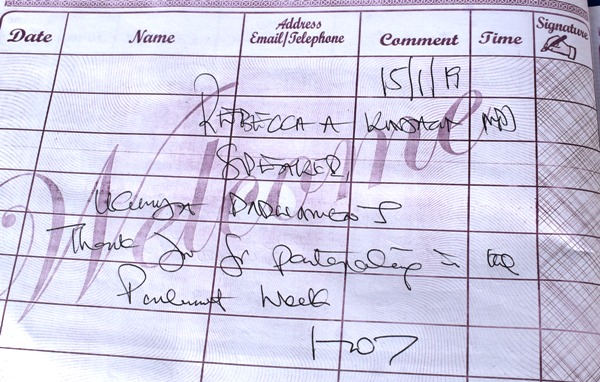 Date Name Address Email/Telephone Comment Time Signature
Welcome
15/1/19
REBECCA A KADAGA MP
SPEAKER,
UGANDA PARLIAMENT
Thank you for participating in the
Parliament Week